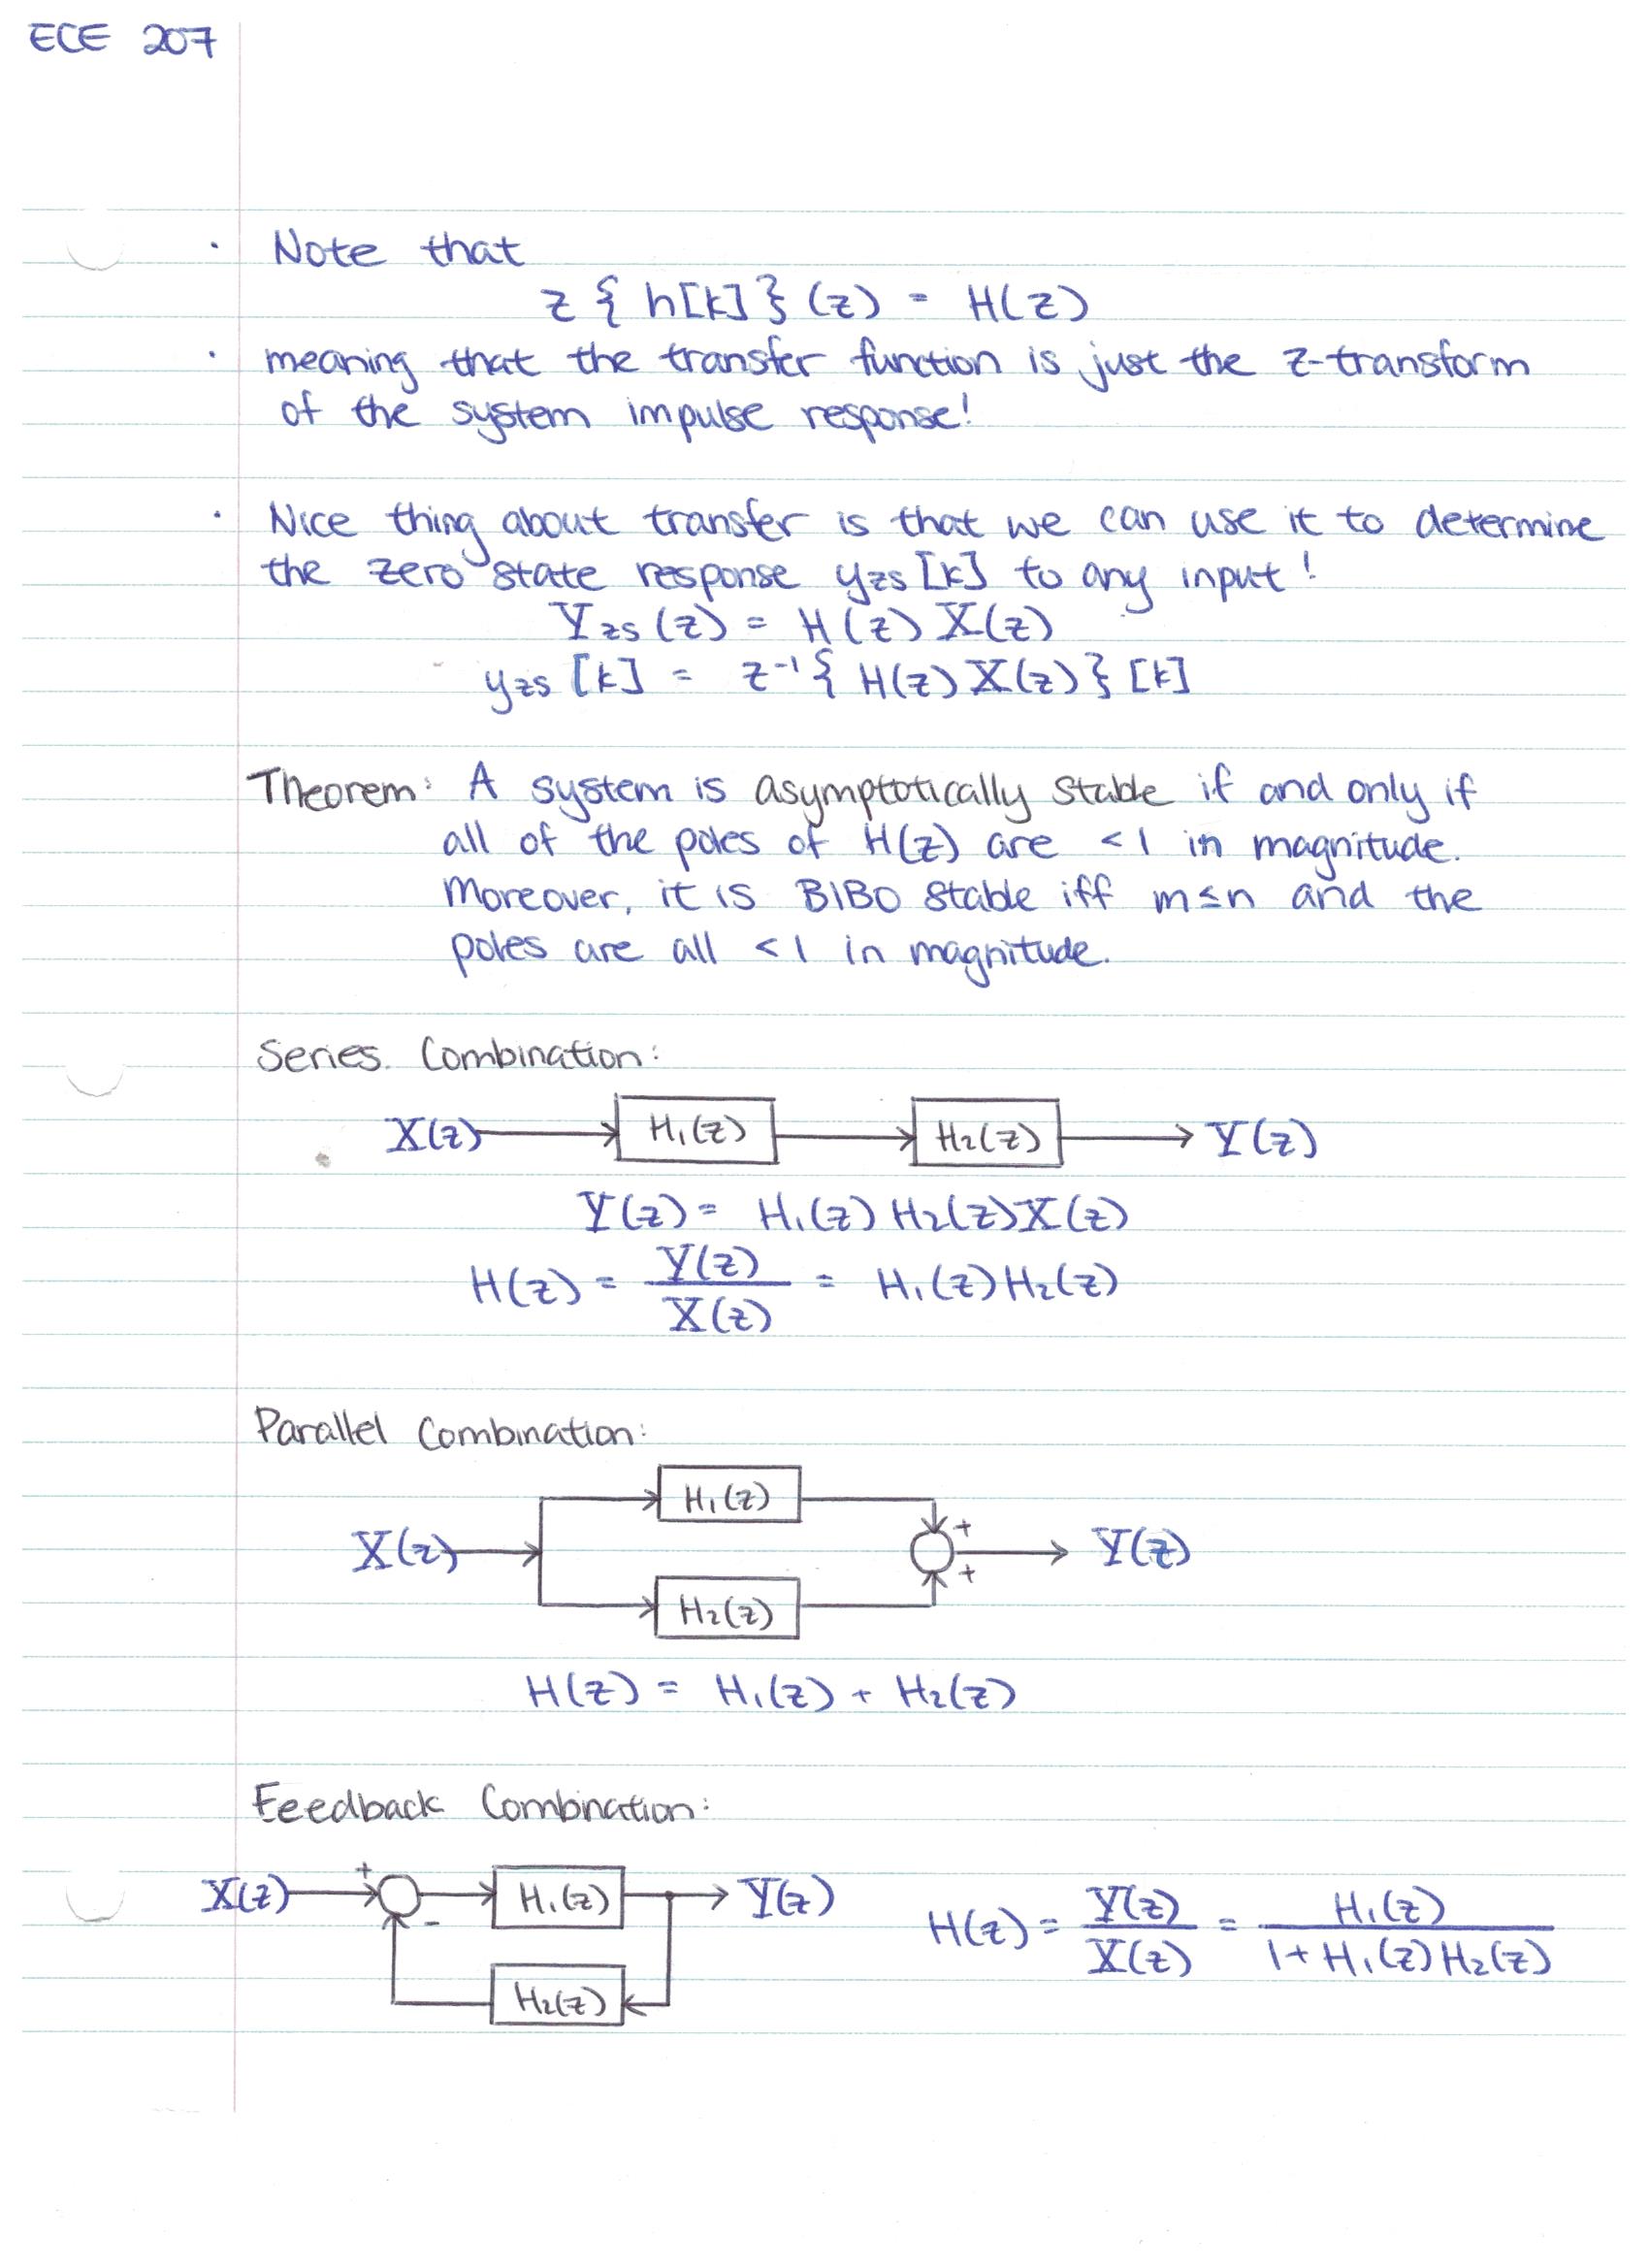 ECE 207
· Note that
z { h[k] } (z) = H(z)
· meaning that the transfer function is just the z-transform
of the system impulse response!
· Nice thing about transfer is that we can use it to determine
the zero state response yzs [k] to any input!
Yzs (z) = H(z) X(z)
yzs [k] = z⁻¹ { H(z) X(z) } [k]
Theorem: A system is asymptotically stable if and only if
all of the poles of H(z) are < 1 in magnitude.
Moreover, it is BIBO stable iff m ≤ n and the
poles are all < 1 in magnitude.
Series Combination:
X(z) H₁(z) H₂(z) Y(z)
Y(z) = H₁(z) H₂(z) X(z)
H(z) = Y(z) / X(z) = H₁(z) H₂(z)
Parallel Combination:
H₁(z)
+
X(z) Y(z)
+
H₂(z)
H(z) = H₁(z) + H₂(z)
Feedback Combination:
X(z) + - H₁(z) Y(z)
H₂(z)
H(z) = Y(z) / X(z) = H₁(z) / 1 + H₁(z) H₂(z)